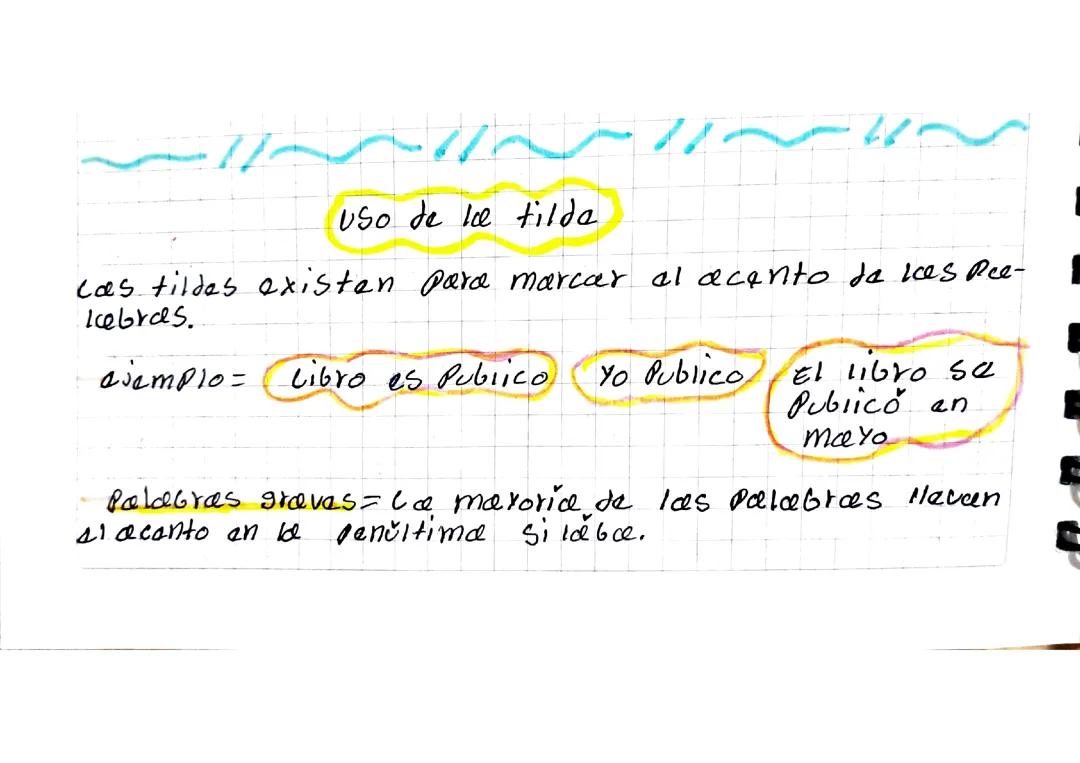 Uso de la tilde
Las tildes existen para marcar el acento de las pa-
labras.
ejemplo= Libro es Publico Yo Publico El libro se
Publicó en
mayo
Palabras graves= La mayoría de las palabras llevan
el acento en la penúltima silába.